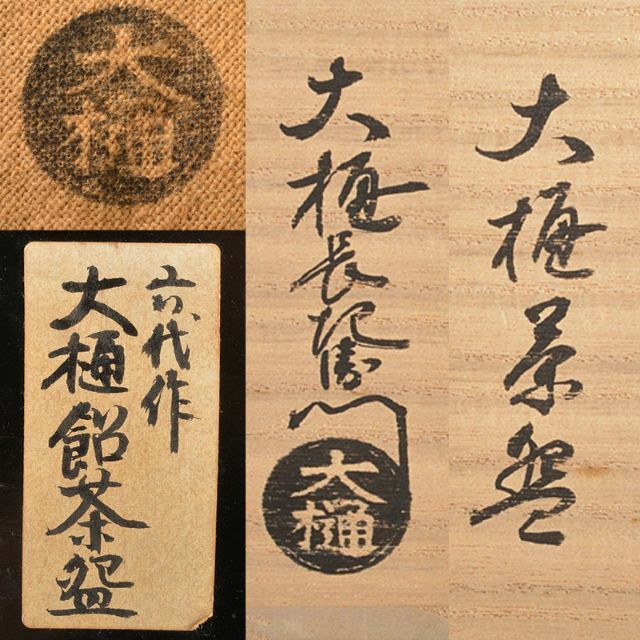 大樋
六代作
大樋飴茶盌
大樋長左衛門
大樋
大樋茶盌